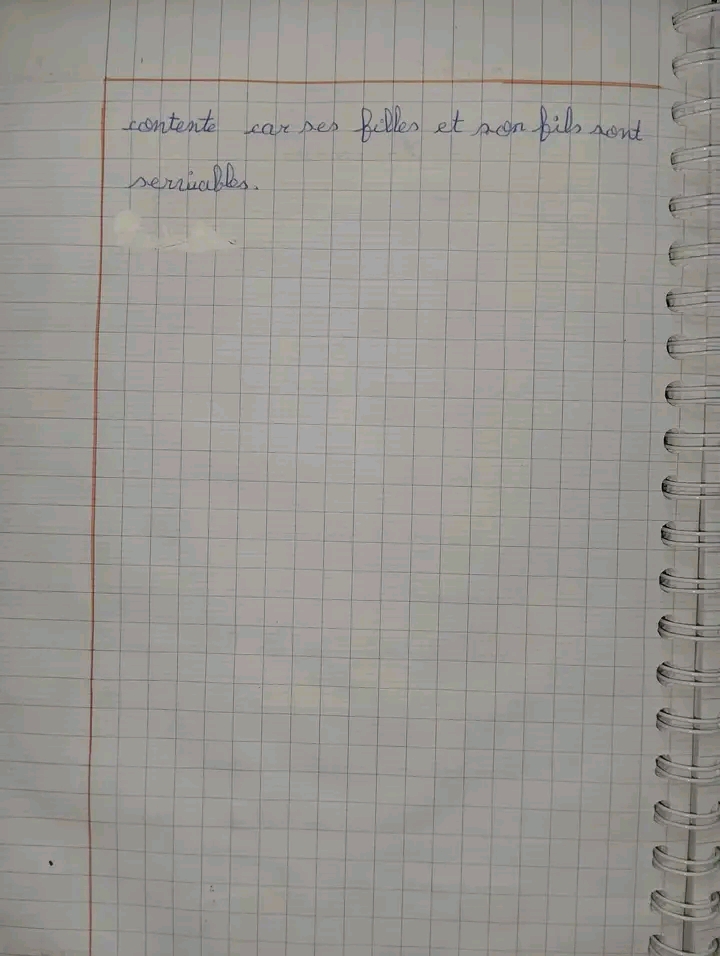 contente car ses filles et son fils sont
serviables.